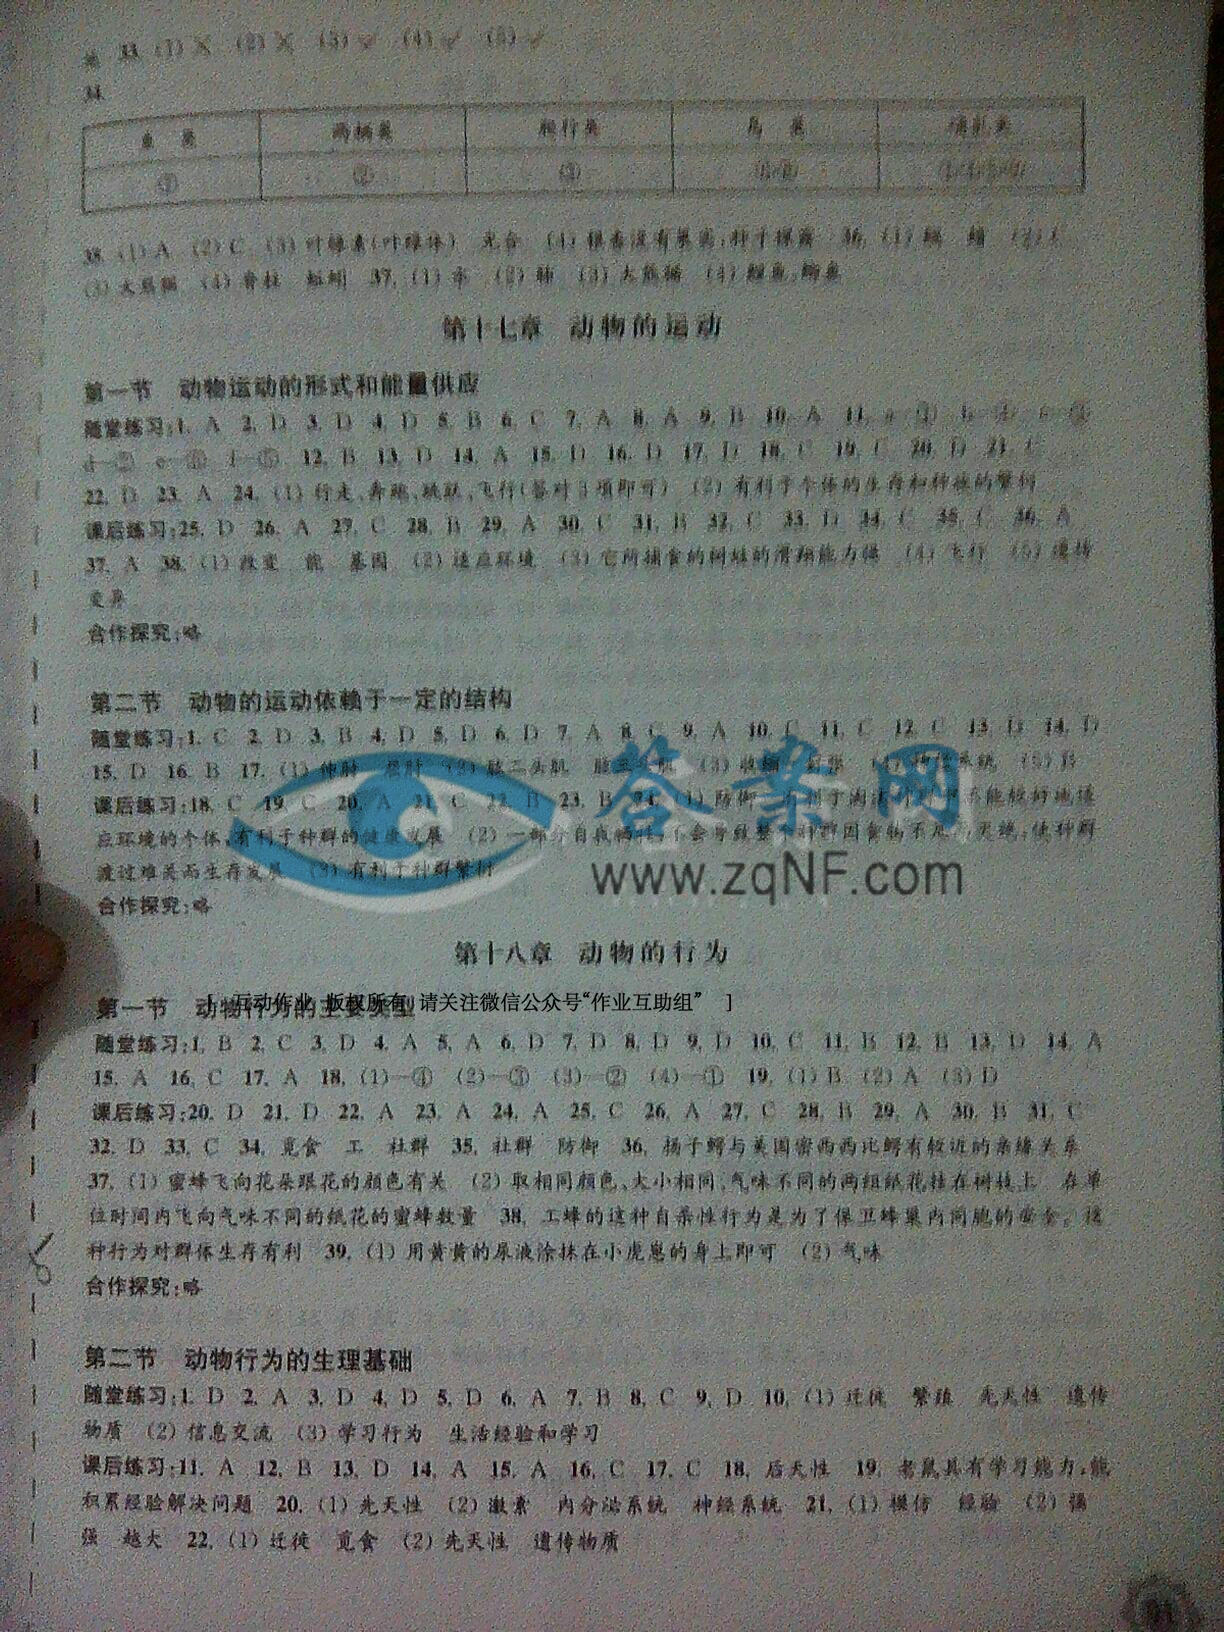 33. (1) × (2) × (3) ✓ (4) ✓ (5) ✓
34.
鱼 类 两栖类 爬行类 鸟 类 哺乳类
35. (1) A (2) C (3) 叶绿素(叶绿体) 光合 (4) 没有果实,种子裸露 36. (1)
(3) 大熊猫 (4) 脊柱 蚯蚓 37. (1) (2) 肺 (3) 大熊猫 (4) 鲤鱼,鲫鱼
第十七章 动物的运动
第一节 动物运动的形式和能量供应
随堂练习:1. A 2. D 3. D 4. D 5. B 6. C 7. A 8. A 9. B 10. A 11.
12. B 13. D 14. A 15. D 16. D 17. D 18. C 19. C 20. D 21. C
22. D 23. A 24. (1) 行走、奔跑、跳跃、飞行(答对3项即可) (2) 有利于个体的生存和种族的繁衍
课后练习:25. D 26. A 27. C 28. B 29. A 30. C 31. B 32. C 33. D 34. C 35. C 36. A
37. A 38. (1) 改变 能 基因 (2) 适应环境 (3) 它所捕食的树蛙的滑翔能力强 (4) 飞行 (5) 遗传
变异
合作探究:略
第二节 动物的运动依赖于一定的结构
随堂练习:1. C 2. D 3. B 4. D 5. D 6. D 7. A 8. C 9. A 10. C 11. C 12. C 13. D 14. D
15. D 16. B 17. (1) 伸肘 屈肘 (2) 肱二头肌 肱三头肌 (3) 收缩 舒张 (4) 神经系统 (5) B
课后练习:18. C 19. C 20. A 21. C 22. B 23. B 24. (1) 防御 有利于淘汰 不能较好地适
应环境的个体,有利于种群的健康发展 (2) 一部分自我牺牲,不会导致整个种群因食物不足而灭绝,使种群
渡过难关而生存发展 (3) 有利于种群繁衍
答案网
www.zqNF.com
合作探究:略
第十八章 动物的行为
第一节 动物行为的主要类型
[ 互动作业 版权所有 请关注微信公众号“作业互助组” ]
随堂练习:1. B 2. C 3. D 4. A 5. A 6. D 7. D 8. D 9. D 10. C 11. B 12. B 13. D 14. A
15. A 16. C 17. A 18. (1)—④ (2)—③ (3)—② (4)—① 19. (1) B (2) A (3) D
课后练习:20. D 21. D 22. A 23. A 24. A 25. C 26. A 27. C 28. B 29. A 30. B 31. C
32. D 33. C 34. 觅食 工 社群 35. 社群 防御 36. 扬子鳄与美国密西西比鳄有较近的亲缘关系
37. (1) 蜜蜂飞向花朵跟花的颜色有关 (2) 取相同颜色、大小相同、气味不同的两组纸花挂在树枝上 在单
位时间内飞向气味不同的纸花的蜜蜂数量 38. 工蜂的这种自杀性行为是为了保卫蜂巢内同胞的安全。这
种行为对群体生存有利 39. (1) 用黄黄的尿液涂抹在小虎崽的身上即可 (2) 气味
合作探究:略
第二节 动物行为的生理基础
随堂练习:1. D 2. A 3. D 4. D 5. D 6. A 7. B 8. C 9. D 10. (1) 迁徙 繁殖 先天性 遗传
物质 (2) 信息交流 (3) 学习行为 生活经验和学习
课后练习:11. A 12. B 13. D 14. A 15. A 16. C 17. C 18. 后天性 19. 老鼠具有学习能力,能
积累经验解决问题 20. (1) 先天性 (2) 激素 内分泌系统 神经系统 21. (1) 模仿 经验 (2) 强
强 越大 22. (1) 迁徙 觅食 (2) 先天性 遗传物质
91